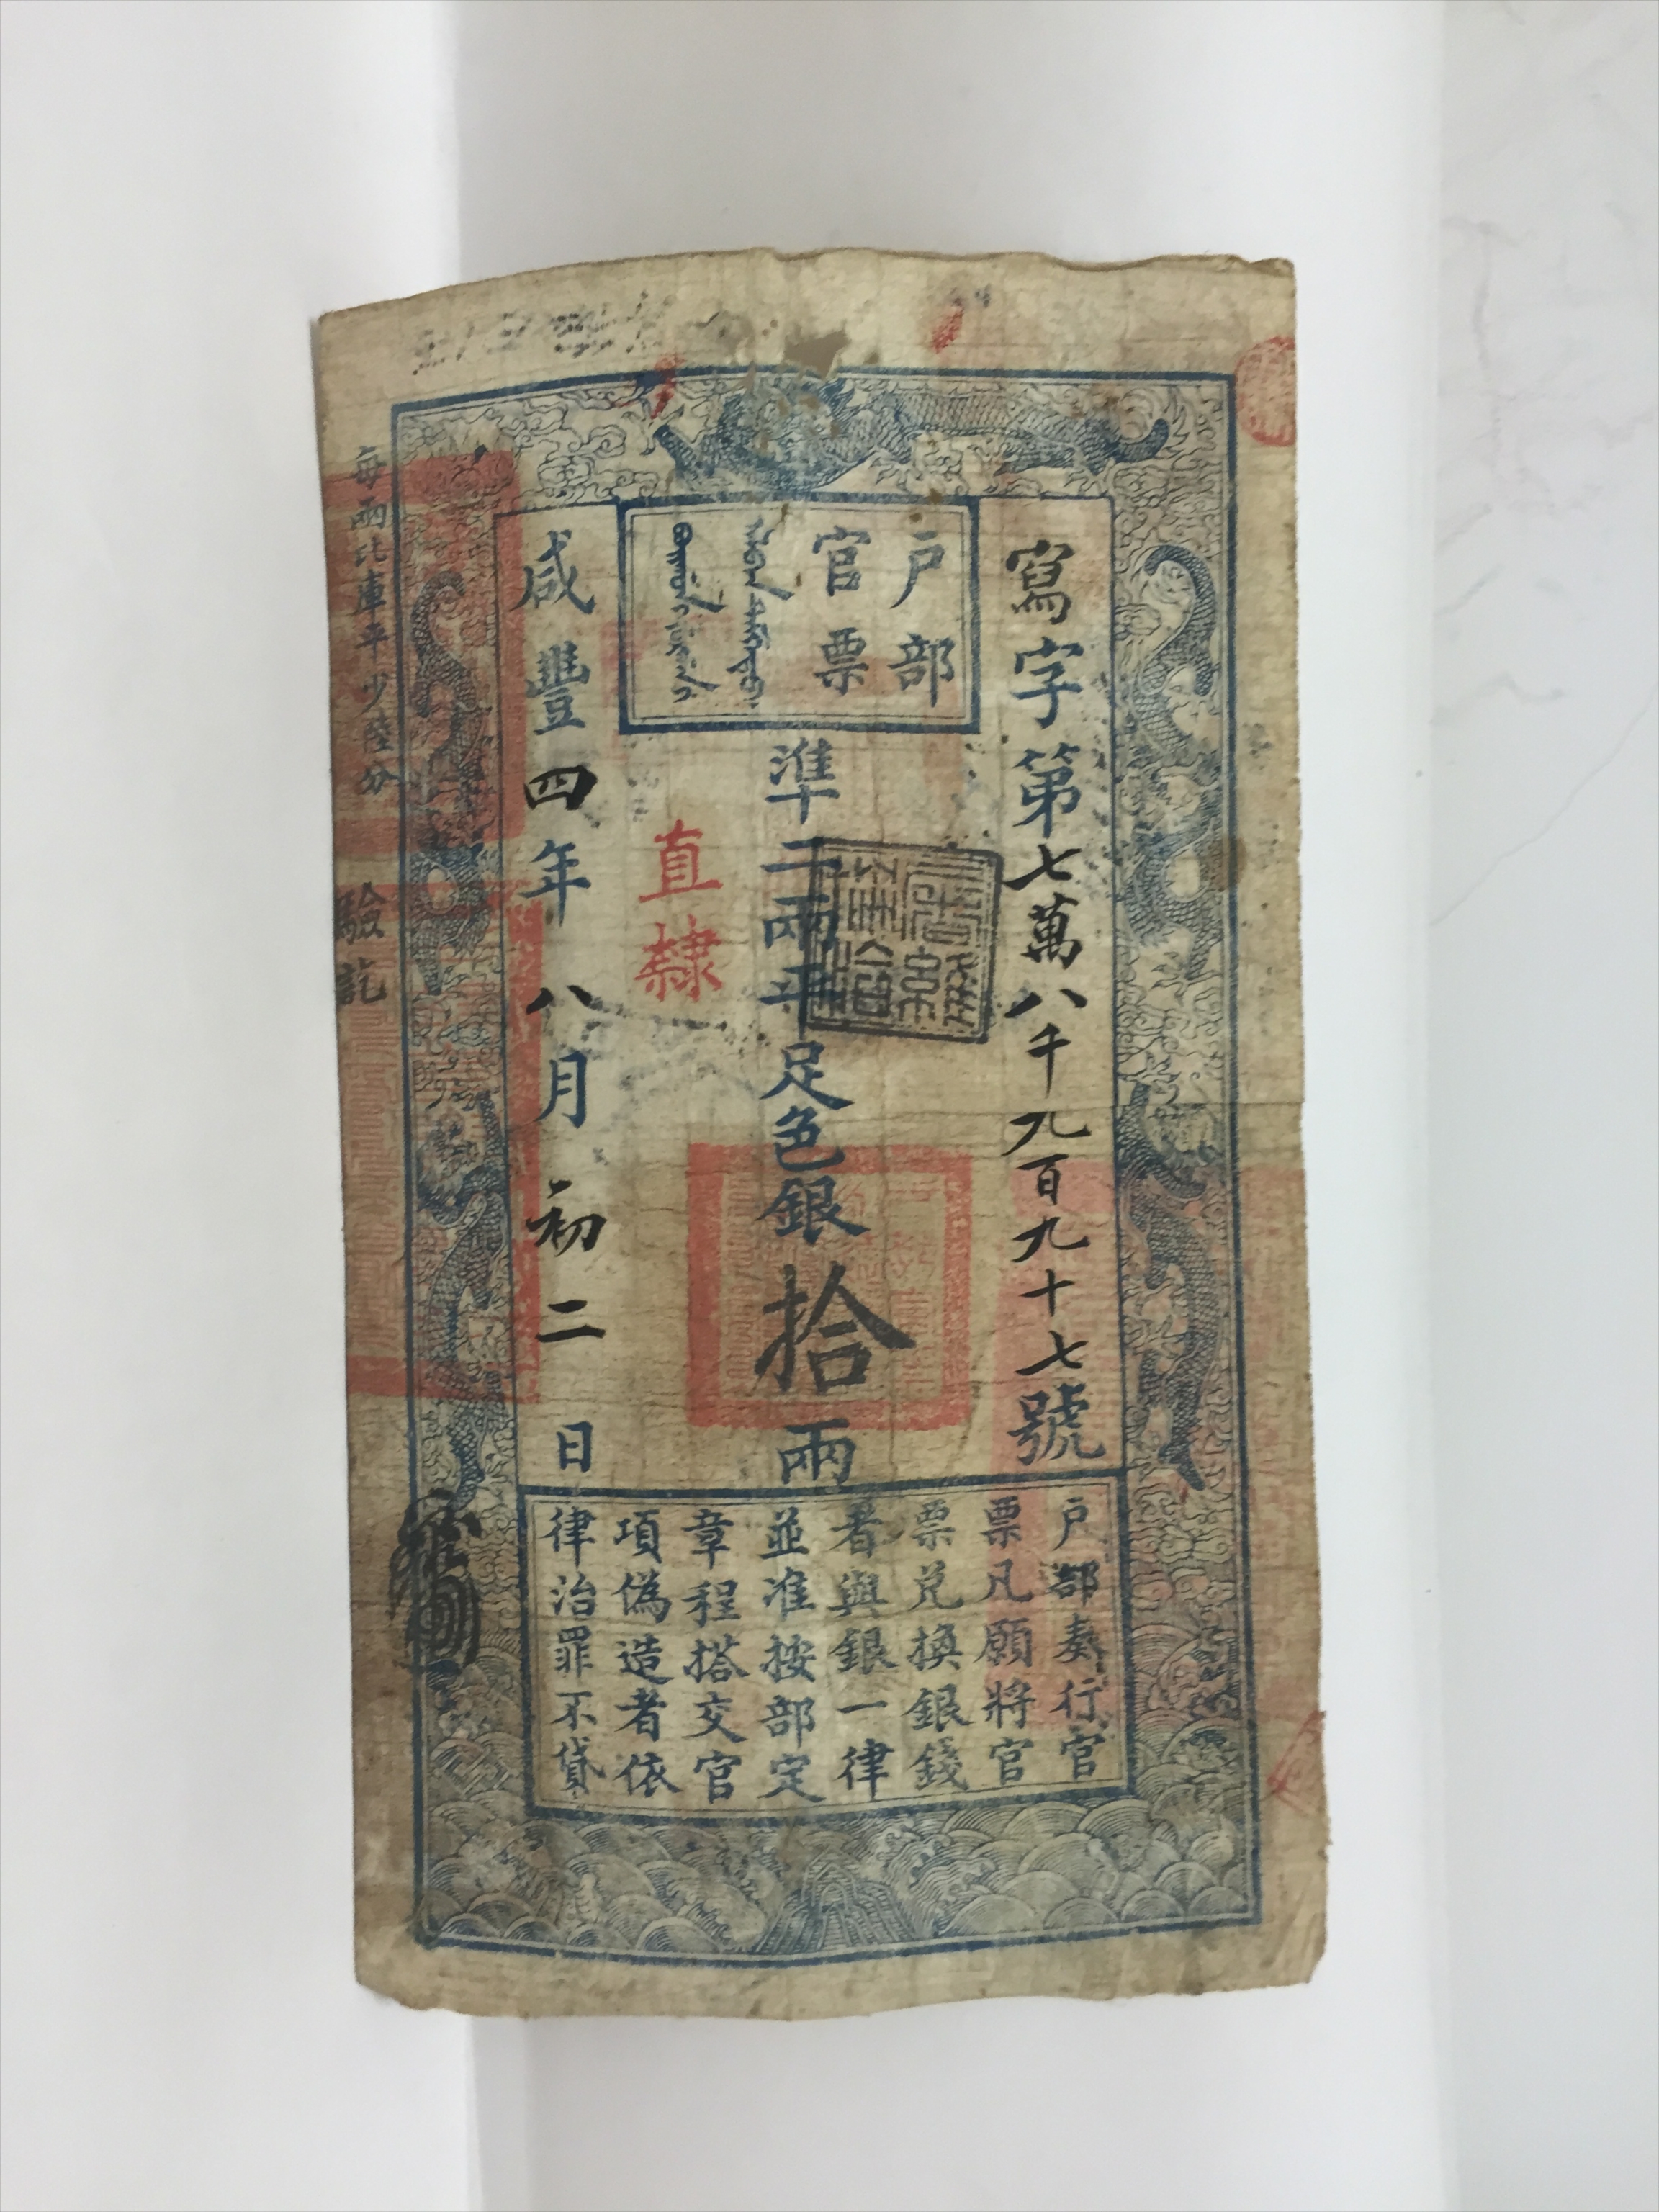 寫字第七萬八千九百九十七號
戶部
官票
準二兩平足色銀拾兩
直隸
咸豐四年八月初二日
每兩比庫平少陸分
驗訖
戶部奏行官
票凡願將官
票兌換銀錢
者與銀一律
並准按部定
章程搭交官
項偽造者依
律治罪不貸